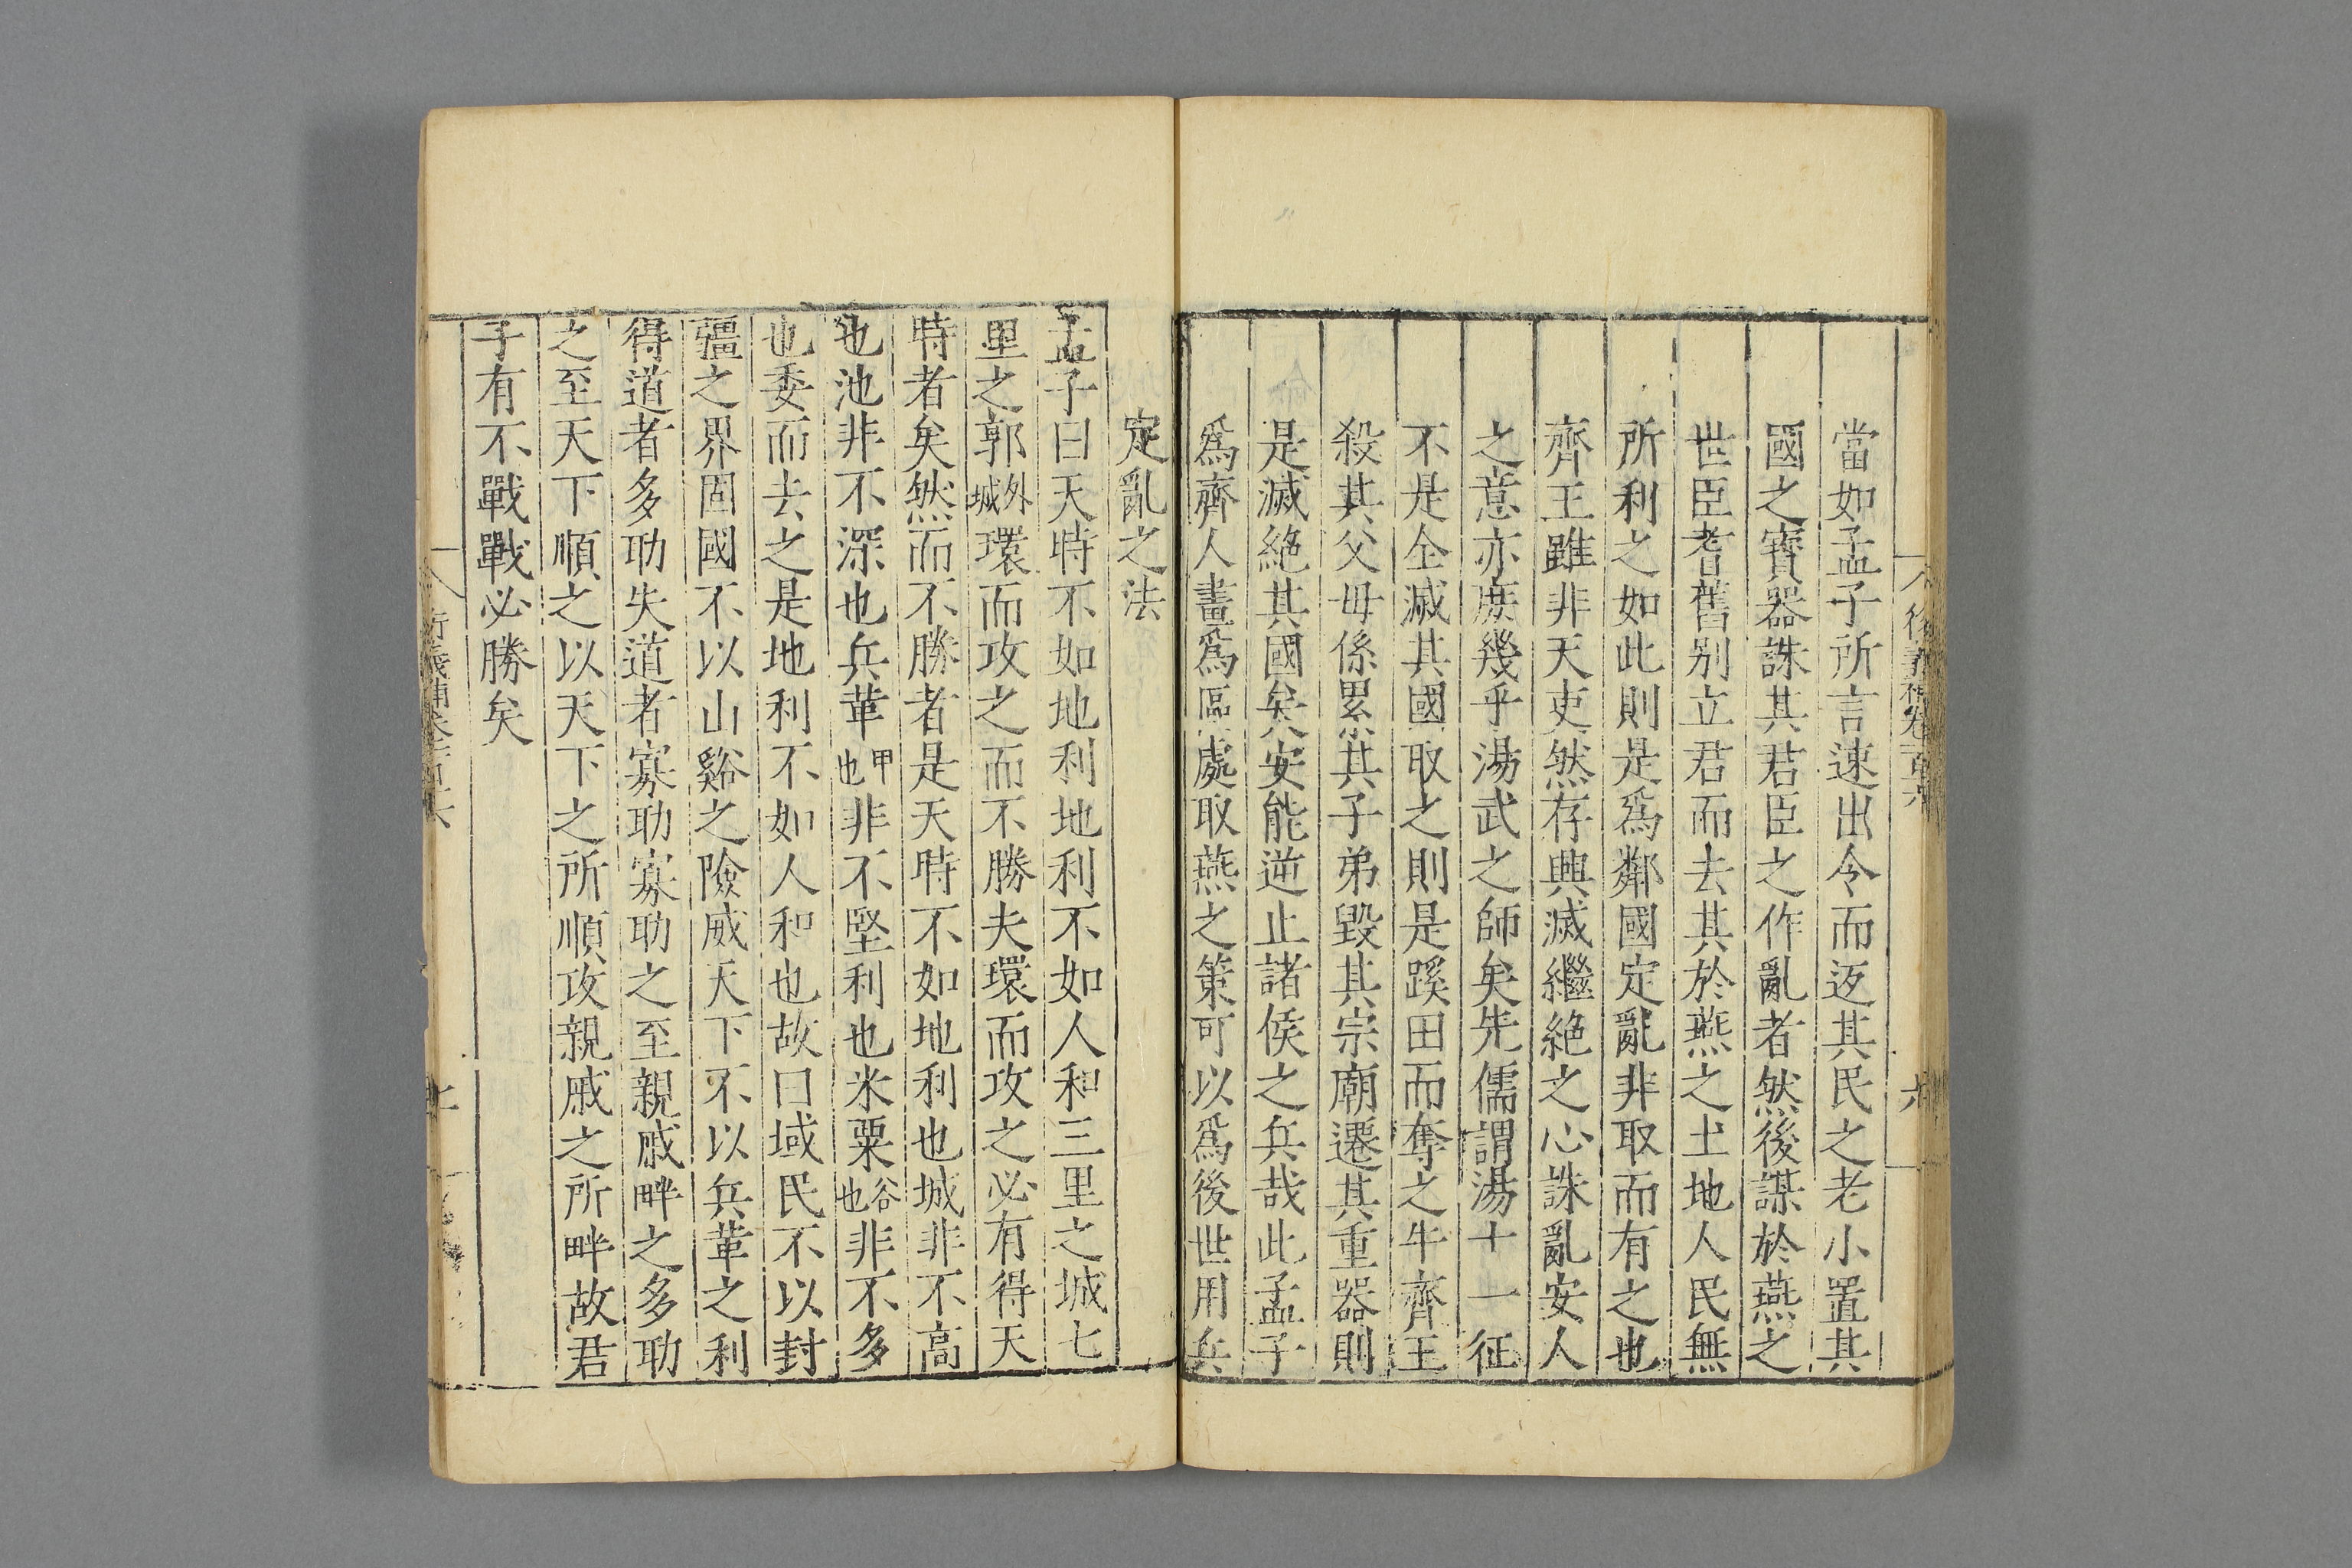 當如孟子所言速出令而返其民之老小置其
國之寶器誅其君臣之作亂者然後謀於燕之
世臣耆舊别立君而去其於燕之土地人民無
所利之如此則是爲鄰國定亂非取而有之也
齊王雖非天吏然存興滅繼絶之心誅亂安人
之意亦庶幾乎湯武之師矣先儒謂湯十一征
不是全滅其國取之則是蹊田而奪之牛齊王
殺其父毋係累其子弟毀其宗廟遷其重器則
是滅絶其國矣安能逆止諸侯之兵哉此孟子
爲齊人畫爲區處取燕之策可以爲後世用兵
定亂之法
孟子曰天時不如地利地利不如人和三里之城七
里之郭外城環而攻之而不勝夫環而攻之必有得天
時者矣然而不勝者是天時不如地利也城非不高
也池非不深也兵革甲也非不堅利也米粟谷也非不多
也委而去之是地利不如人和也故曰域民不以封
疆之界固國不以山谿之險威天下不以兵革之利
得道者多助失道者寡助寡助之至親戚畔之多助
之至天下順之以天下之所順攻親戚之所畔故君
子有不戰戰必勝矣